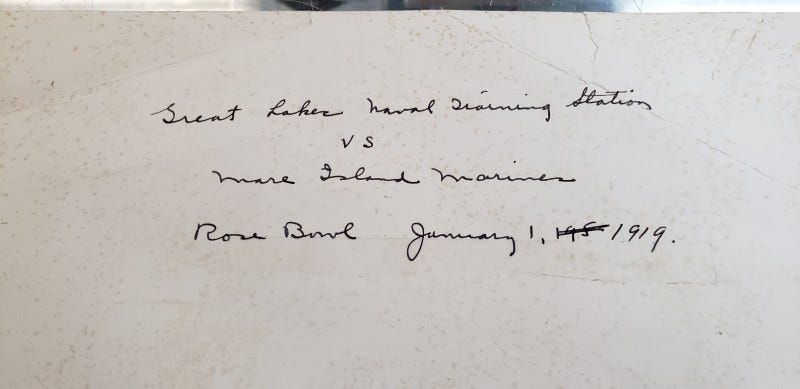 Great Lakes Naval Training Station
VS
Mare Island Marines
Rose Bowl January 1, 1919.